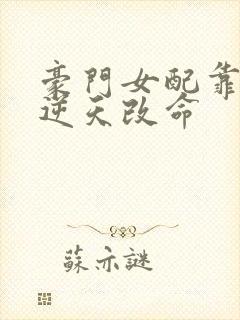 豪門女配靠
逆天改命
蘇亦謎